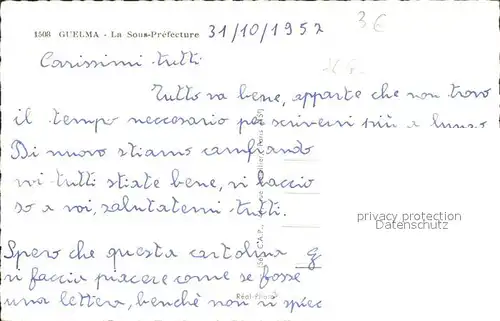 1508 GUELMA - La Sous-Préfecture 31/10/1957 3€
Carissimi tutti
Tutto va bene, apparte che non trovo
il tempo neccesario per scrivervi più a lungo
Di nuovo stiamo cambiando
vi tutti stiate bene, vi baccio
so a voi, salutatemi tutti.
privacy protection
Datenschutz
Spero che questa cartolina
vi faccia piacere come se fosse
una lettera, benchè non vi
Réal-Photo